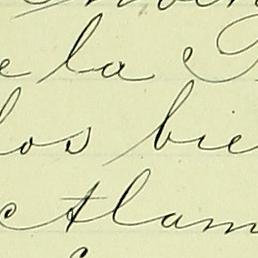 e la
los bie
ctlam